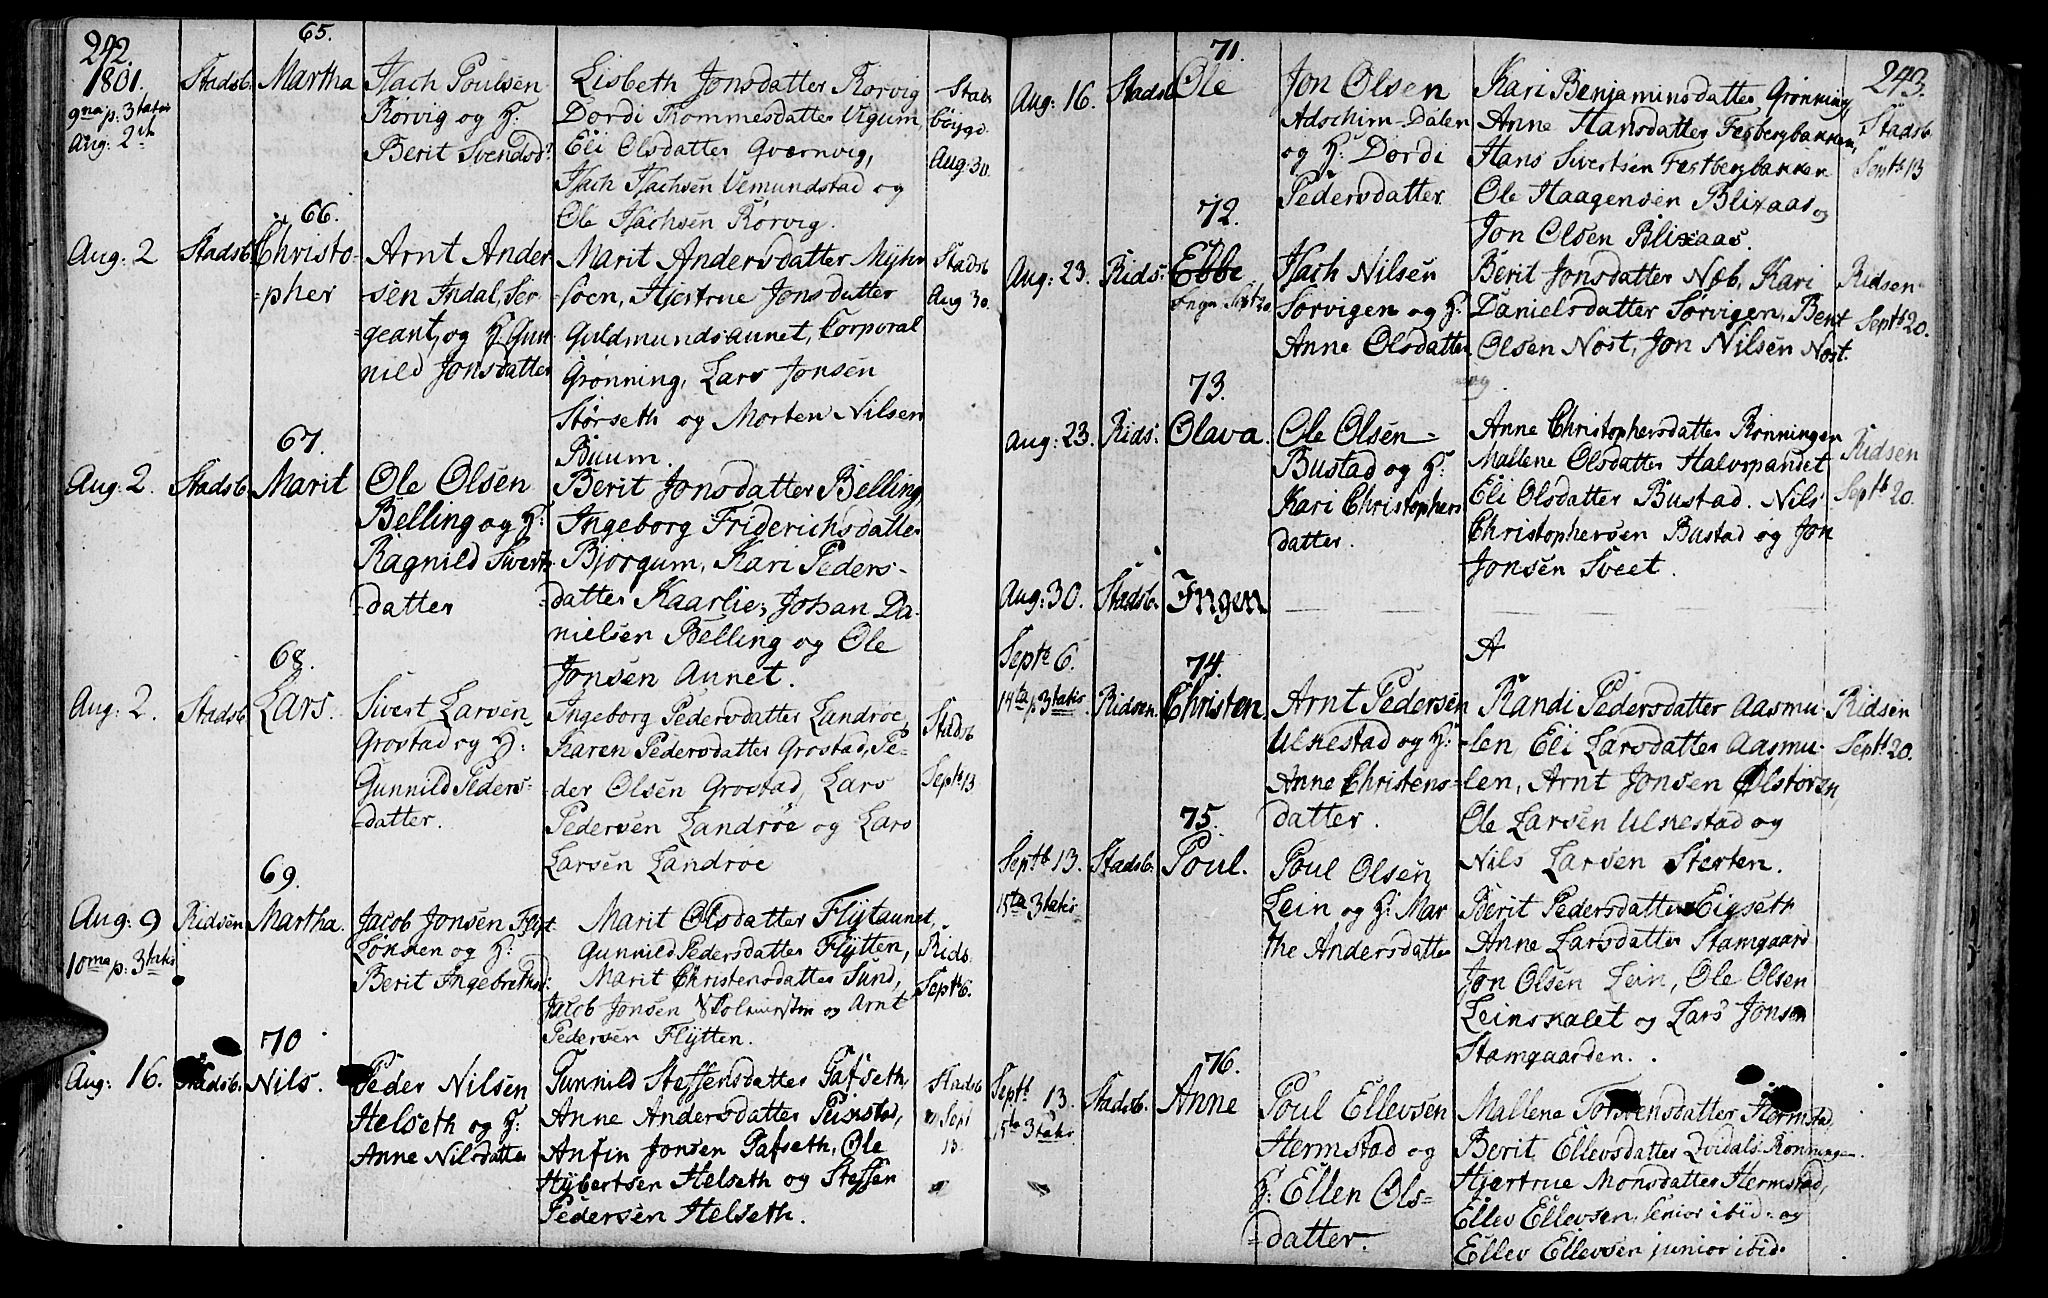 242.
1801.
9na p: 3tatis
Aug: 2.
Stadsb.
65.
Martha
Isach Poulsen
Rørvig og H:
Berit Svendsd:
Lisbeth Jonsdatter Rørvig
Dordi Tommesdatter Vigum,
Eli Olsdatter Qværnvig,
Isach Isachsen Vemundstad og
Ole Isachsen Rørvig.
Stads
bøygd.
Aug: 30.
66.
Aug: 2
Stadsb.
Christo-
-pher
Arnt Ander
-sen Indal, Ser
-geant, og H: Gun
nild Jonsdatter
Marit Andersdatter Myhr
-loen, Hjertrue Jonsdatter
Guldmundsaunet, Corporal
Grønning, Lars Jonsen
Størseth og Morten Nilsen
Buum.
Stadsb
Aug 30.
67.
Aug: 2.
Stadsb.
Marit
Ole Olsen
Belling og H:
Ragnild Siverts
-datter
Berit Jonsdatter Belling,
Ingeborg Friderichsdatter
Bjørgum, Kari Peders-
-datter Kaarlie, Johan Da-
nielsen Belling og Ole
Jonsen Aunet.
68.
Aug: 2.
Stadsb
Lars.
Sivert Larsen
Grøstad og H:
Gunnild Peders-
-datter.
Ingeborg Pedersdatter Landrøe,
Karen Pedersdatter Grøstad, Pe-
der Olsen Grøstad, Lars
Pedersen Landrøe og Lars
Larsen Landrøe
Stadsb
Septb 13
69.
Aug: 9
10ma p. 3tatis
Ridsen
Martha.
Jacob Jonsen Flyt
Løkken og H:
Berit Ingebrethsd:
Marit Olsdatter Flytaunet,
Gunnild Pedersdatter Flytten,
Marit Christensdatter Sund,
Jacob Jonsen og Arnt
Pedersen Flytten.
Rids.
Septb 6.
70
Aug: 16.
Stadsb.
Nils.
Peder Nilsen
Helseth og H:
Anne Nilsdatter
Gunnild Steffensdatter Gafseth,
Anne Andersdatter Pukstad,
Anfin Jonsen Gafseth, Ole
Hybertsen Helseth og Steffen
Pedersen Helseth.
Stadsb
Sept
13.
243.
71.
Aug: 16.
Stadsb
Ole
Jon Olsen
Adschim-Dalen
og H: Dordi
Pedersdatter
Kari Benjaminsdatter Grønning
Anne Hansdatter Festbergbakken,
Hans Sivertsen Festbergbakken
Ole Haagensen Blixaas og
Jon Olsen Blixaas.
Stadsb
Septb 13
72.
Aug: 23.
Rids:
Ebbe
Isach Nilsen
Sørvigen og H:
Anne Olsdatter
Berit Jonsdatter Næb, Kari
Danielsdatter Sørvigen, Bent
Olsen Nøst, Jon Nilsen Nøst.
og
Ridsen
Septb 20.
73.
Aug: 23.
Rids:
Olava.
Ole Olsen
Bustad og H:
Kari Christophers
datter.
Anne Christophersdatter Rønningen
Mallene Olsdatter Halvspandet
Eli Olsdatter Bustad. Nils
Christophersen Bustad og Jon
Jonsen Sveet.
Ridsen
Septb 20.
Aug: 30.
Stadsb.
Ingen
74.
A
Septb 6.
14ta p 3tatis
Ridsen.
Christen
Arnt Pedersen
Ulkestad og H:
Anne Christens-
datter.
Randi Pedersdatter Aasmu-
-len, Eli Larsdatter Aasmu-
-len, Arnt Jonsen Ølstøren,
Ole Larsen Ulkestad og
Nils Larsen Sterten.
Ridsen
Septb 20.
75.
Septb 13.
15ta 3tatis
Stadsb.
Poul.
Poul Olsen
Lein og H: Mar
the Andersdatter
Berit Pedersdatter Eigseth
Anne Larsdatter Stamgaard
Jon Olsen Lein, Ole Olsen
Leinskalet og Lars Jonsen
Stamgaarden.
76.
Septb 13.
15ta 3tatis
Stadsb.
Anne
Poul Ellevsen
Hermstad og
H: Ellen Ols-
-datter.
Mallene Torstensdatter Hermstad,
Berit Ellevsdatter Qvidals-Rønningen.
Hjertrue Monsdatter Hermstad,
Ellev Ellevsen senior ibid: og
Ellev Ellevsen junior ibid.